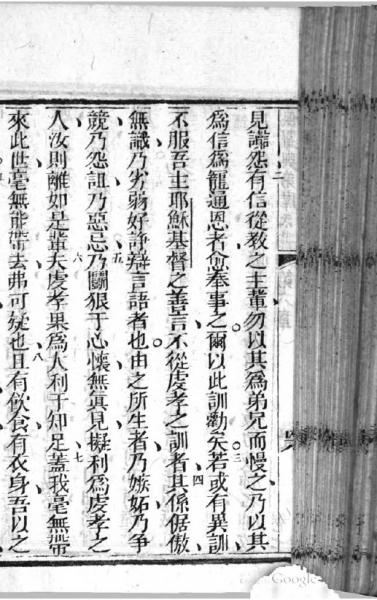 見謗怨有信從教之主輩勿以其爲弟兄而慢之乃以其
爲信爲寵通恩者愈奉事之爾以此訓勸矣若或有異訓
不服吾主耶穌基督之善言不從虔孝之訓者其係倨傲
無識乃劣弱好諍辯言語者也由之所生者乃嫉妬乃爭
競乃怨詛乃惡忌乃鬬狠于心懷無真見擬利爲虔孝之
人汝則離如是輩夫虔孝果爲大利于知足蓋我毫無帶
來此世毫無能帶去弗可疑也且有飲食有衣身吾以之
二
三
四
五
六
七
八
Google